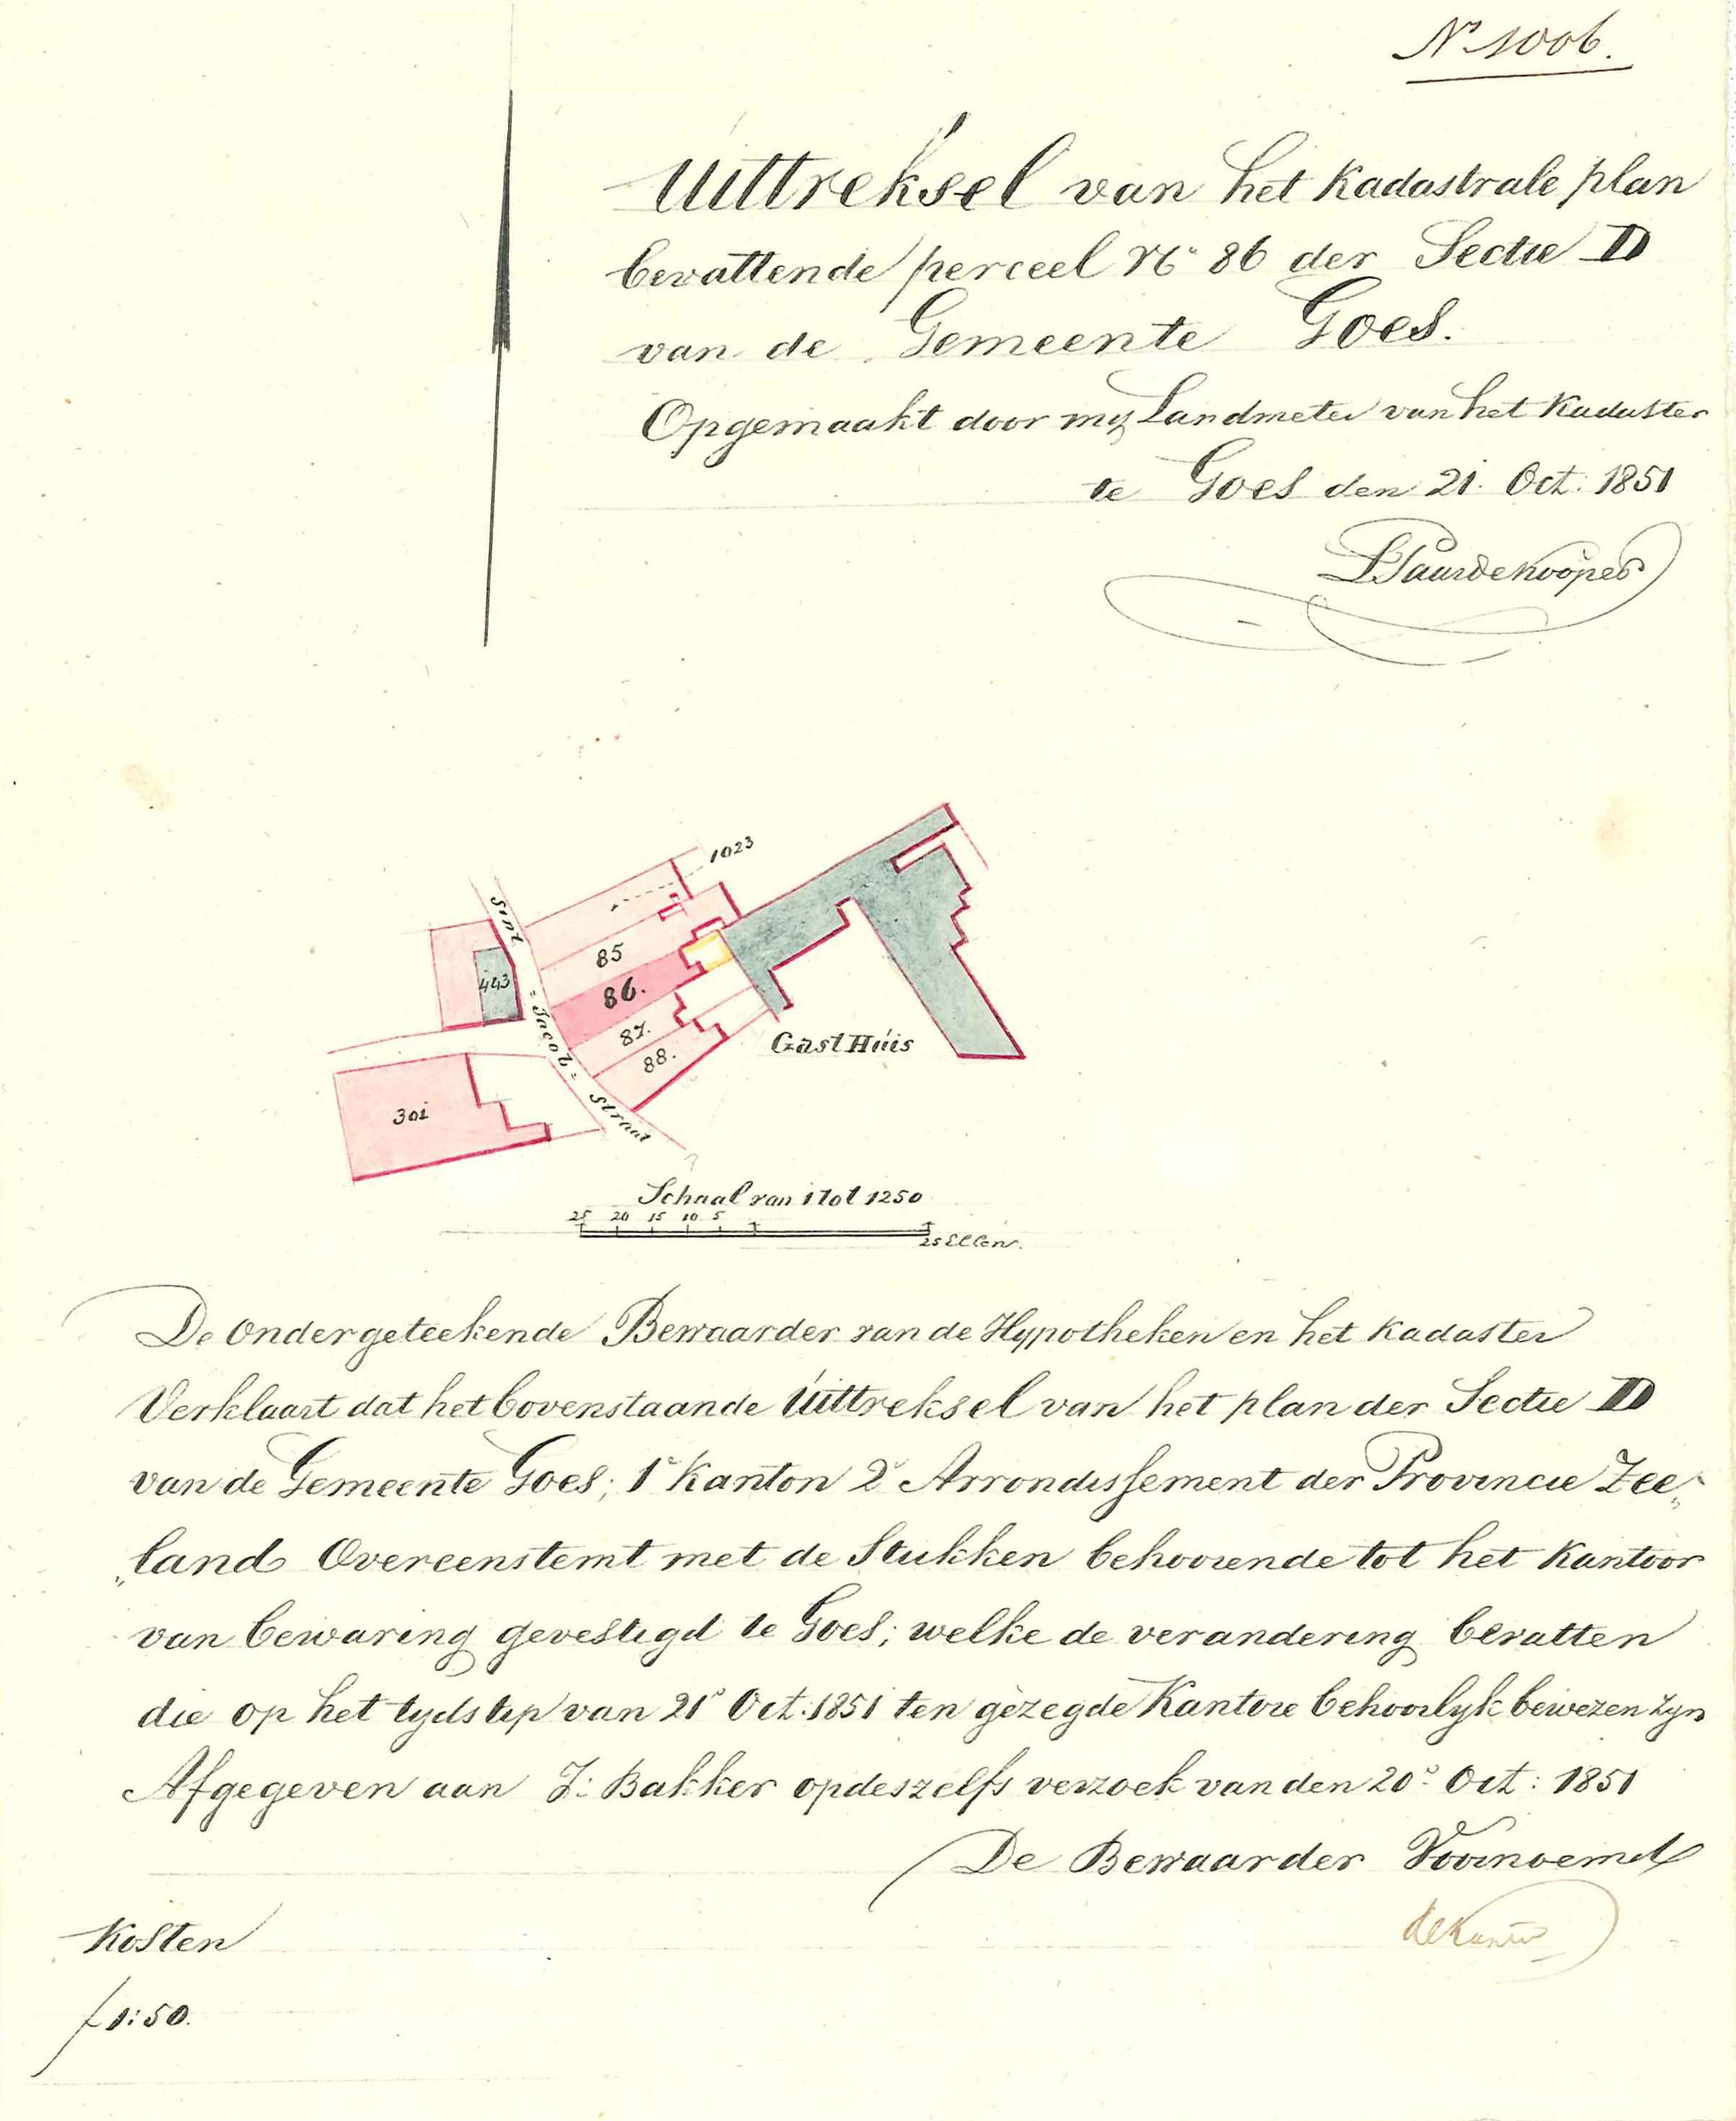 No 1006.
Uittreksel van het Kadastrale plan
bevattende perceel No 86 der Sectie D
van de Gemeente Goes.
Opgemaakt door mij Landmeter van het Kadaster
te Goes den 21 Oct: 1851
Paardekooper
1023
Sint
85
443
86.
=Jacob=
87.
88.
GastHuis
301
Straat
Schaal van 1 tot 1250
25 20 15 10 5
25 Ellen.
De Ondergeteekende Bewaarder van de Hypotheken en het Kadaster
Verklaart dat het bovenstaande Uittreksel van het plan der Sectie D
van de Gemeente Goes; 1e Kanton 2e Arrondissement der Provincie Zee„
„land Overeenstemt met de Stukken behoorende tot het Kantoor
van bewaring gevestigd te Goes; welke de verandering bevatten
die op het tydstip van 21e Oct: 1851 ten gezegde Kantore behoorlyk bewezen zyn
Afgegeven aan J: Bakker op deszelfs verzoek van den 20e Oct: 1851
De Bewaarder Voornoemd
Kosten
f 1:50.